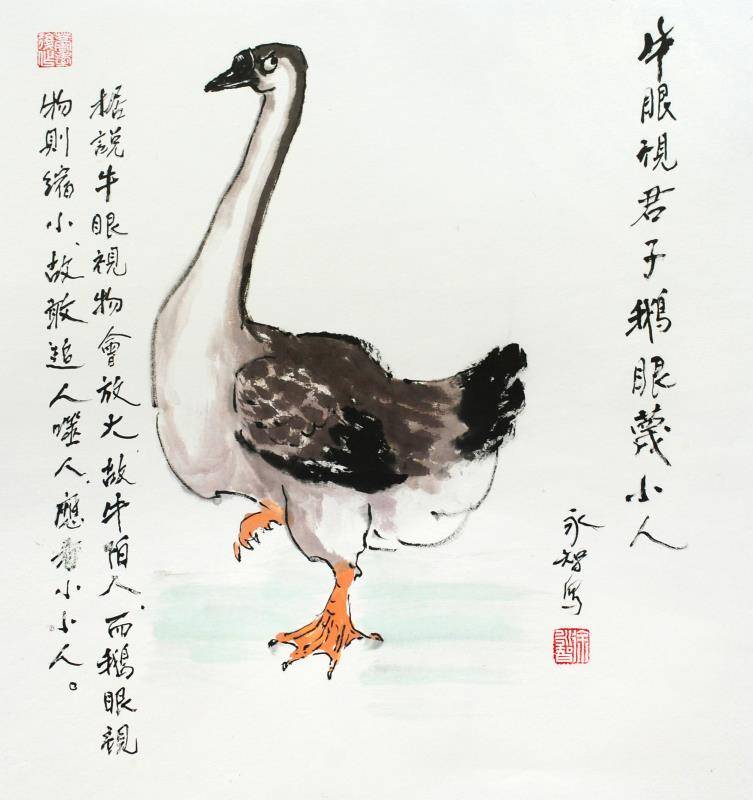 牛眼視君子鵝眼蔑小人
永智寫
据說牛眼視物會放大、故牛怕人、而鵝眼視
物則縮小、故敢追人噬人、應看小小人。